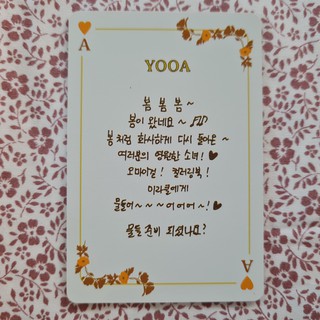 A
YOOA
봄 봄 봄 ~
봄이 왔네요 ~ ♪♫
봄처럼 화사하게 다시 돌아온 ~
여러분의 영원한 소녀! ♥
오마이걸! 컬러링북!
미라클에게
물들어 ~ ~ ~ 어어어 ~! ♥
물들 준비 되셨나요?
A